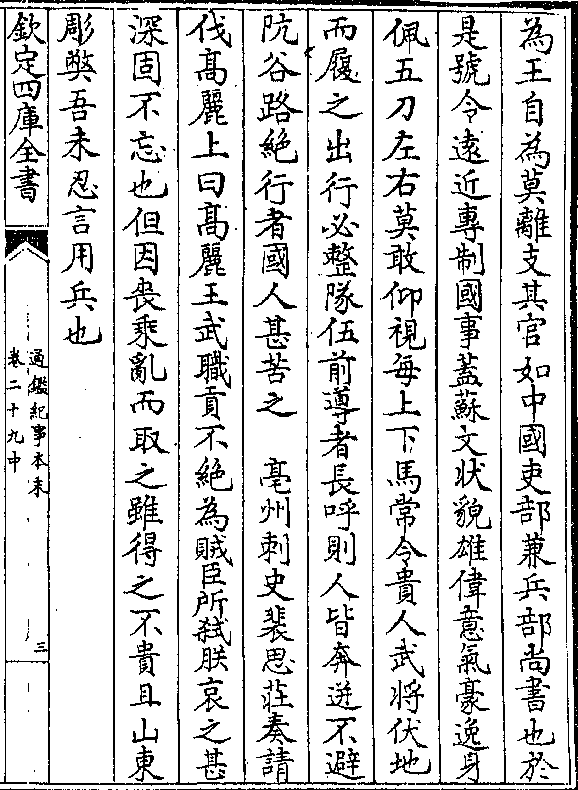 為王自為莫離支其官如中國吏部兼兵部尚書也於
是號令遠近專制國事蓋蘇文狀貌雄偉意氣豪逸身
佩五刀左右莫敢仰視每上下馬常令貴人武將伏地
而履之出行必整隊伍前導者長呼則人皆奔迸不避
阬谷路絶行者國人甚苦之　亳州刺史裴思莊奏請
伐髙麗上曰髙麗王武職貢不絶為賊臣所弑朕哀之甚
深固不忘也但因喪乘亂而取之雖得之不貴且山東
彫弊吾未忍言用兵也
欽定四庫全書
通鑑紀事本末
卷二十九中
三